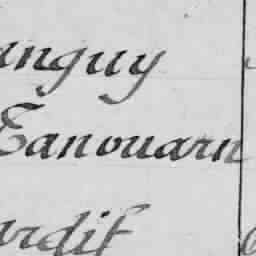 anguy
Eanouarn
ardif